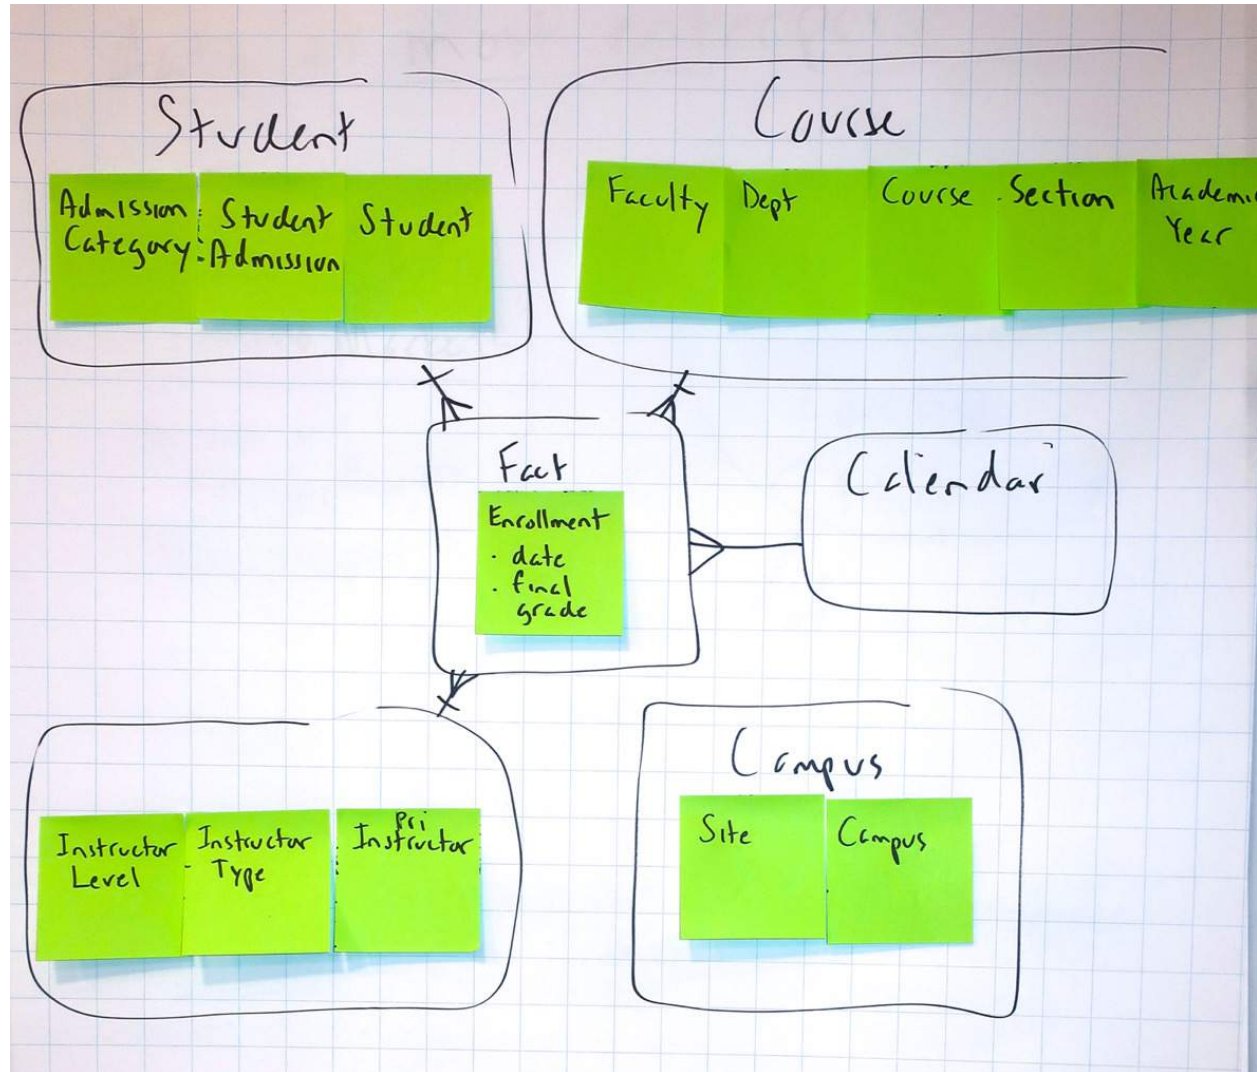 Student
Admission
Category
Student
Admission
Student
Course
Faculty
Dept
Course
Section
Academic
Year
Fact
Enrollment
· date
· final
grade
Calendar
Instructor
Level
Instructor
Type
Pri
Instructor
Campus
Site
Campus